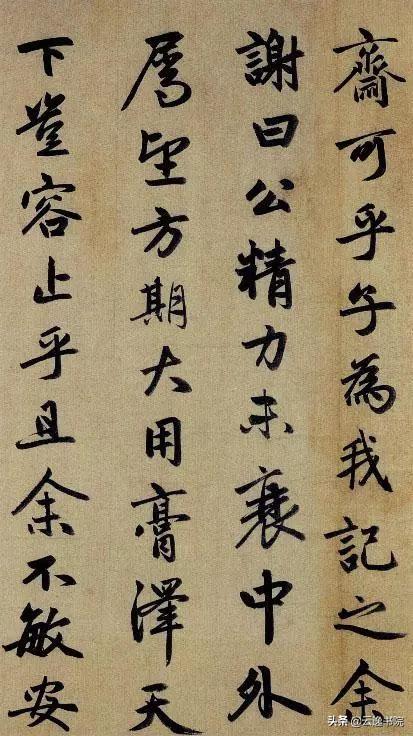 齋可乎子為我記之余
謝曰公精力未衰中外
屬望方期大用膏澤天
下豈容止乎且余不敏安
头条 @云逸书院